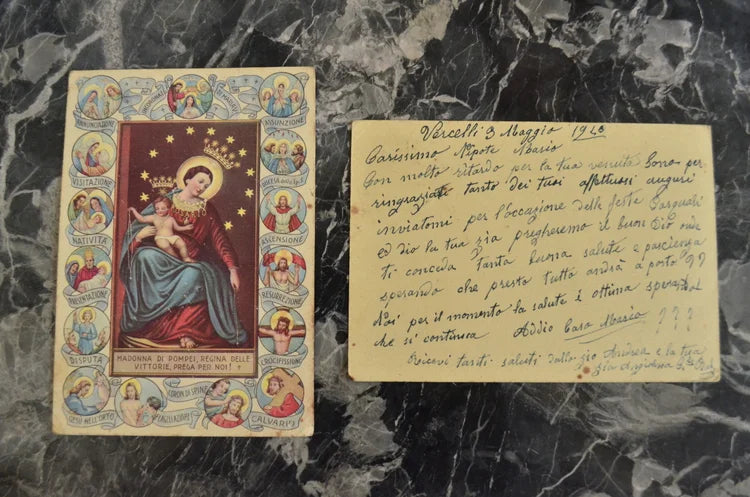 ANNUNCIAZIONE
ASSUNZIONE
VISITAZIONE
DISCESA dello Sp.S.
NATIVITÀ
ASCENSIONE
PRESENTAZIONE
RESURREZIONE
DISPUTA
CROCIFISSIONE
MADONNA DI POMPEI, REGINA DELLE
VITTORIE, PREGA PER NOI!
CORON. DI SPINE
GESÙ NELL'ORTO
FLAGELLAZIONE
CALVARIO
Vercelli 3 Maggio
Carissimo Nipote Mario
Con molto ritardo per la tua venuta sono per
ringraziarti tanto dei tuoi affettuosi auguri
inviatomi per l'occasione delle feste Pasquali
ed dio la tua zia pregheremo il buon Dio onde
ti conceda tanta buona salute e pascienza
sperando che presto tutto andrà a posto ??
Noi per il momento la salute è ottima
che si continua Addio Caro Mario ???
Ricevi tanti saluti dallo zio Andrea e la tua
zia